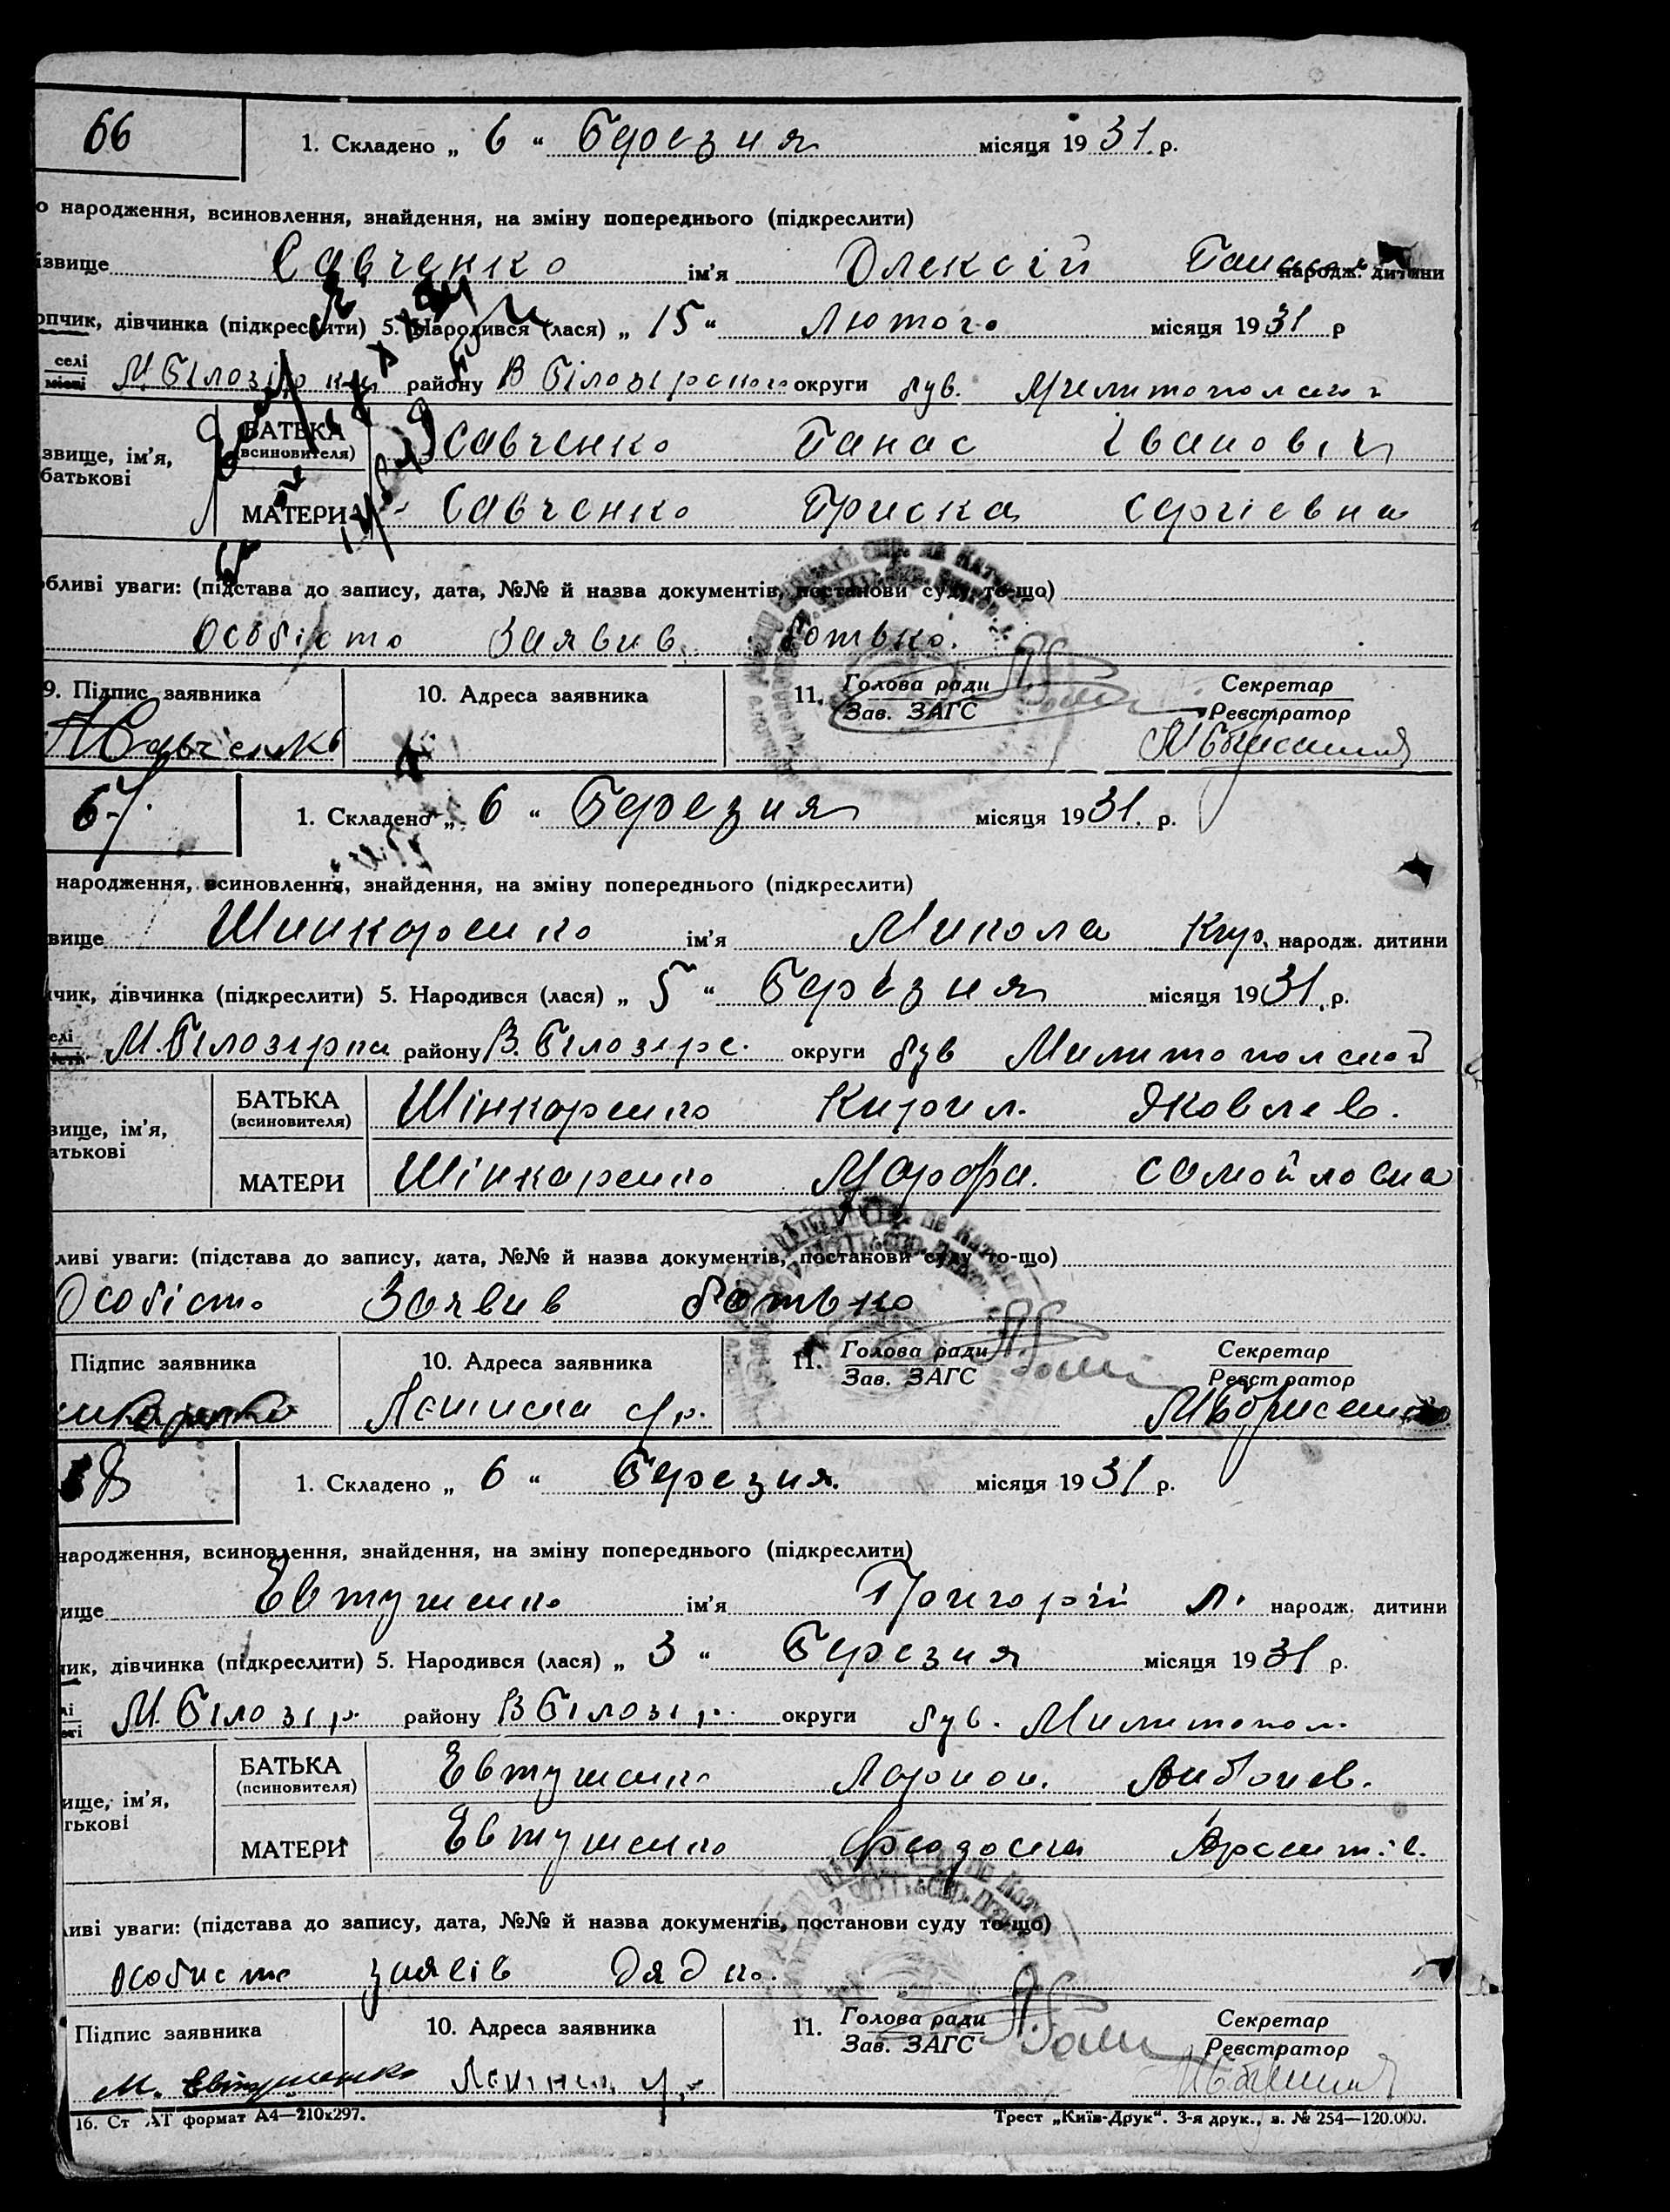 66
1. Складено „ 6 “ Березня місяця 1931 р.
о народження, всиновлення, знайдення, на зміну попереднього (підкреслити)
ізвище Савченко ім’я Олексій народж. дитини
опчик, дівчинка (підкреслити) 5. Народився (лася) „ 15 “ Лютого місяця 1931 р
селі
місті М. Білозірки району В Білозірського округи був. Мелитополської
звище, ім’я,
батькові
БАТЬКА
(всиновителя) Савченко Панас Іванович
МАТЕРИ Савченко Приска Сергіевна
обливі уваги: (підстава до запису, дата, №№ й назва документів, постанови суду то-що)
Особісто Заявив батько.
9. Підпис заявника 10. Адреса заявника 11. Голова ради Секретар
Зав. ЗАГС Реєстратор
Савченко
67.
1. Складено „ 6 “ Березня місяця 1931. р.
народження, всиновлення, знайдення, на зміну попереднього (підкреслити)
вище Шинкаренко ім’я Микола Кир. народж. дитини
чик, дівчинка (підкреслити) 5. Народився (лася) „ 5 “ Березня місяця 1931. р.
елі
М. Білозірка району В. Білозірс. округи був Милитополской
вище, ім’я,
атькові
БАТЬКА
(всиновителя) Шінкаренко Кирил. Яковлев.
МАТЕРИ Шінкаренко Марфа. Самойловна
ливі уваги: (підстава до запису, дата, №№ й назва документів, постанови суду то-що)
Особісто Заявив батько
Підпис заявника 10. Адреса заявника 11. Голова ради Секретар
Зав. ЗАГС Реєстратор
МБорисенко
8
1. Складено „ 6 “ Березня. місяця 1931 р.
народження, всиновлення, знайдення, на зміну попереднього (підкреслити)
ище Евтушенко ім’я Григорій Л. народж. дитини
ик, дівчинка (підкреслити) 5. Народився (лася) „ 3 “ Березня місяця 1931 р.
М. Білозір. району В Білозір. округи був. Милитопол.
ище, ім’я,
тькові
БАТЬКА
(псиновителя) Евтушенко Ларион.
МАТЕРИ Евтушенко Феодосия
ливі уваги: (підстава до запису, дата, №№ й назва документів, постанови суду то-що)
особисто заявів Дядко.
Підпис заявника 10. Адреса заявника 11. Голова ради Секретар
Зав. ЗАГС Реєстратор
М. Евтушенко
16. Ст АТ формат А4—210х297. Трест „Київ-Друк“. 3-я друк., з. № 254—120.000.